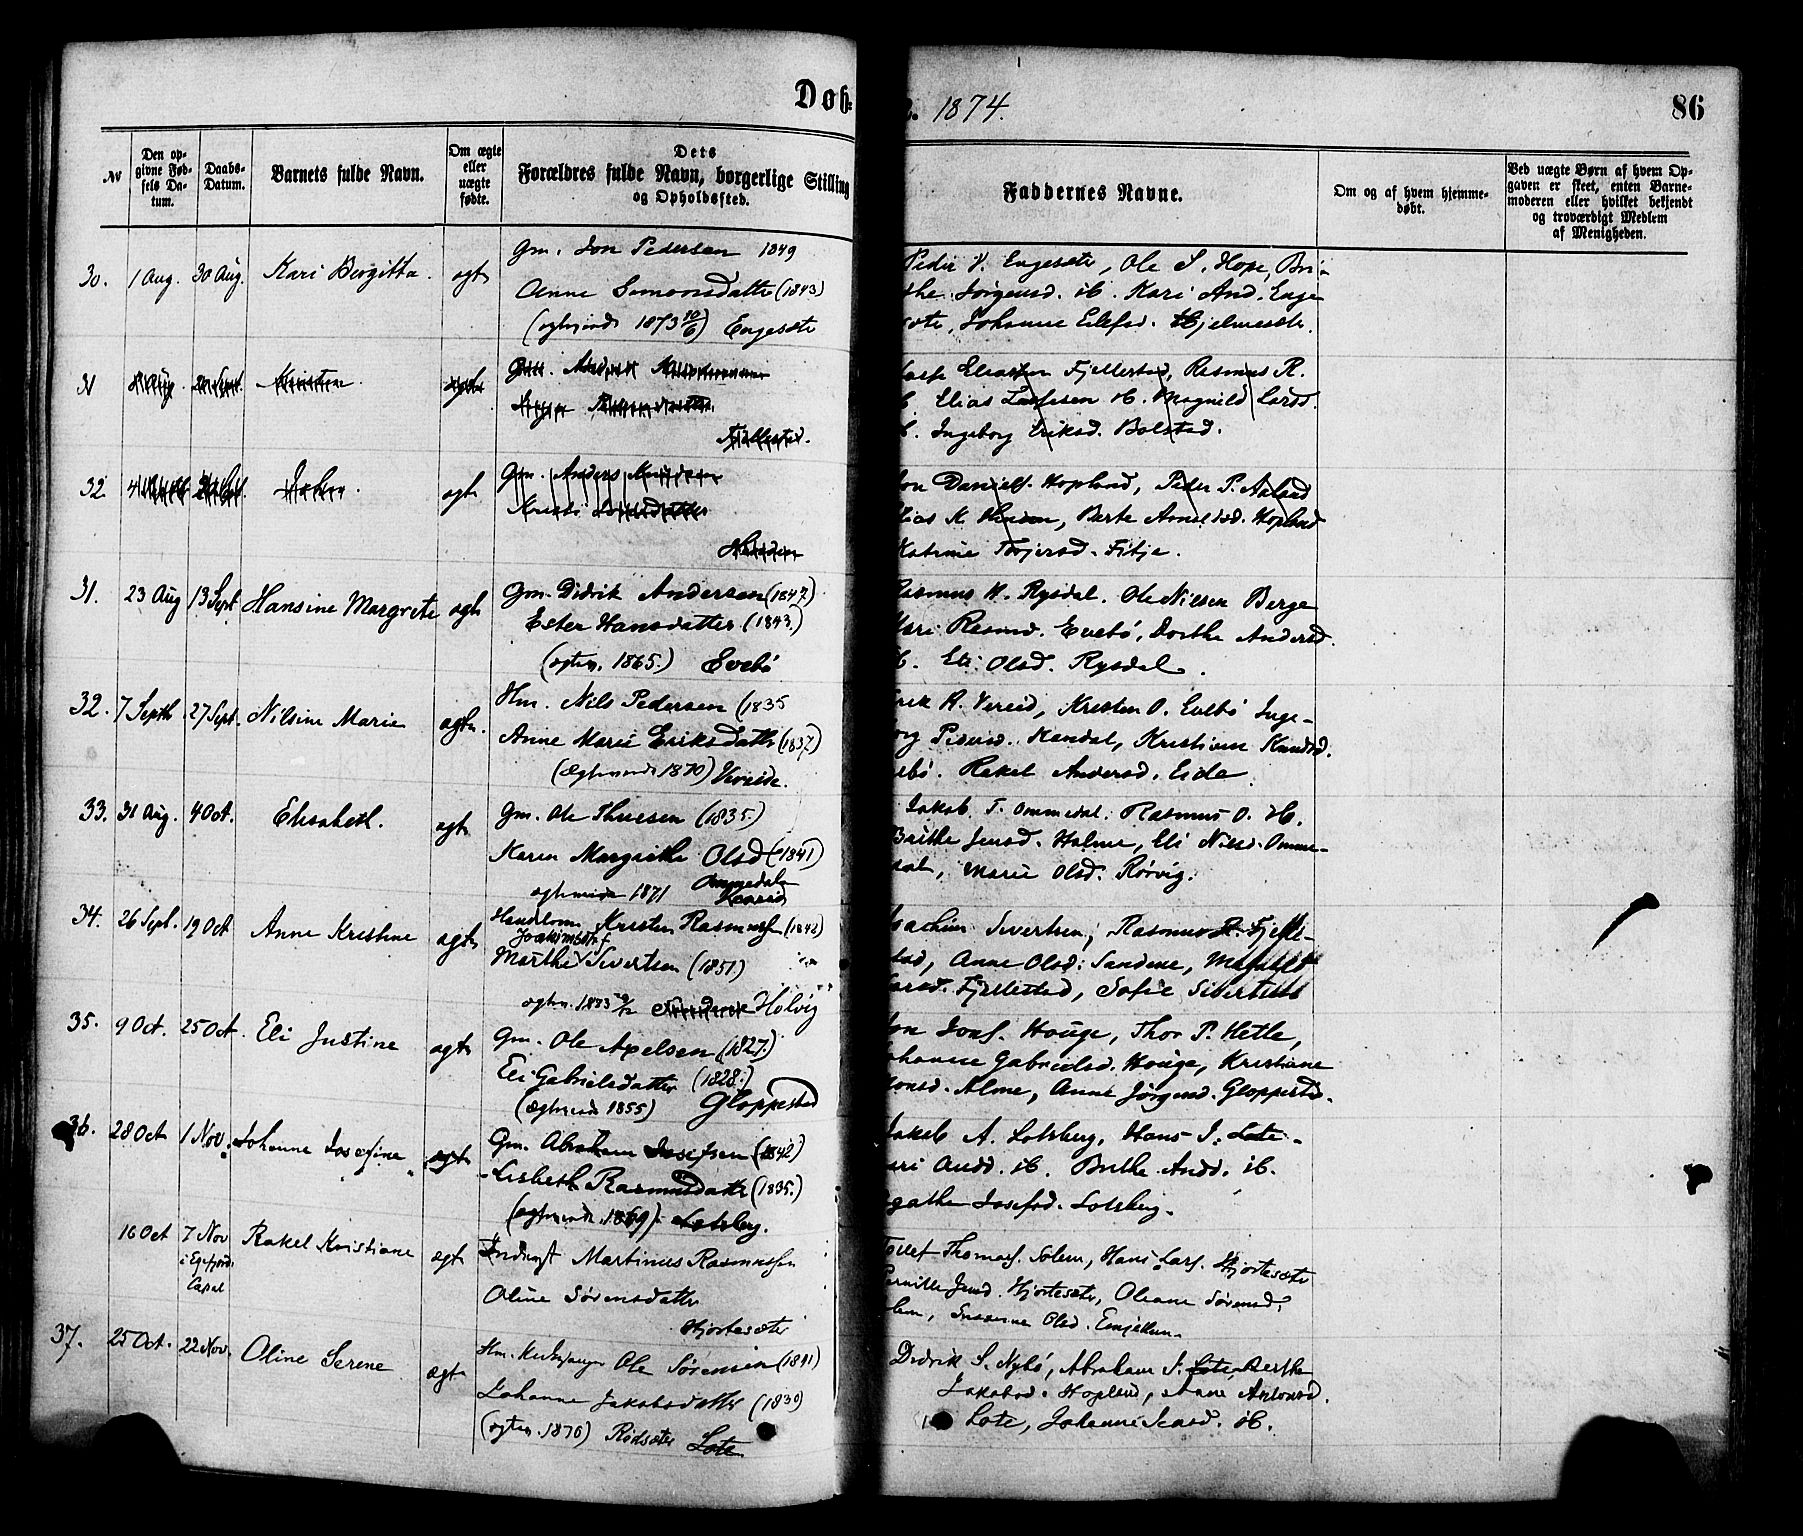 Døb-
1874.
86
№
Den op-
givne Fød-
sels Da-
tum.
Daabs-
Datum.
Barnets fulde Navn.
Om ægte
eller
uægte
fødte.
Dets
Forældres fulde Navn, borgerlige Stilling
og Opholdssted.
Faddernes Navne.
Om og af hvem hjemme-
døbt.
Ved uægte Børn af hvem Op-
gaven er skeet, enten Barne-
moderen eller hvilket bekjendt
og troværdigt Medlem
af Menigheden.
30. 1 Aug. 30 Aug. Kari Birgitta. ægt
Gm. Jon Pedersen 1849
Anne Simonsdatter (1843)
1873 10/6) Engesæt
Peder Engesæter, Ole S. Hope, Bri-
the Jørgensd. ib. Kari And. Enge
sæte, Johanne Eilefsd. Hjelmesæter.
31 Aug. Sept. Kristen ægt
Gm. Anders
Fjellestad.
Fjellestad, Rasmus R.
Elias ib. Magnild Larsd.
ib. Ingeborg Eriksd. Bolstad.
32 ægt
Gm. Anders Knudsen
Daniels. Hopland, Peder P. Aaland
Elias K. Berte Hopland
Katrine Fitje.
31. 23 Aug 13 Sept. Hansine Margrete ægt
Gm. Didrik Andersen (1847)
Ester Hansdatter (1843.)
(ægtev. 1865.) Evebø
Rasmus Rysdal. Ole Nilsen Berge
Mari Rasmd. Evebø, Dorthe Andersd.
ib. Eli Olsd. Rysdal.
32. 7 Septb. 27 Sept. Nilsine Marie ægte.
Hm. Nils Pedersen (1835
Anne Marie Eriksdatter (1837)
1870) Vereide.
Erik R. Vereid, Kristen O. Evebø Inge-
borg Pedersd. Mandal, Kristiane Knudsd.
Evebø. Rakel Andersd. Eide
33. 31 Aug. 4 Oct. Elisabeth. ægt
Gm. Ole Thuesen (1835)
Karen Margrethe Olsd (1841)
1871 Ommedal
Jakob T. Ommedal. Rasmus O. ib.
Brithe Jensd. Holme, Eli Nilsd. Omme-
dal, Marie Olsd. Rørvig.
34. 26 Sept. 19 Oct Anne Kristine ægt
Kristen Rasmuss (1842)
Marthe Sivertsen (1851)
ægtev. 1873 Holvig
Joachim Sivertsen, Rasmus R. Fjelle-
stad, Anne Olsd. Sandene, Magnild
Larsd. Fjellestad, Sofie Sivertsen
35. 9 Oct. 25 Oct. Eli Justine ægt
Gm. Ole Axelsen (1827.)
Eli Gabrielsdatter (1828.)
1855) Gloppestad
Jon Jons. Houge, Thor P. Hetle,
Johanne Gabrielsd. Houge, Kristiane
Monsd. Alme, Anne Jørgensd. Gloppestad.
36. 28 Oct 1 Nov. Johanne Josefine ægt
Gm. Abraham Josefsen (1842)
Lisbeth Rasmusdatter (1835.)
1869) Lotsberg.
Jakob A. Lotsberg, Hans J. Lote.
Kari Andd. ib. Brithe Andd. ib.
Agathe Josefsd. Lotsberg.
16 Oct 7 Nov Rakel Kristiane ægt
Capel
Inderst Martinus Rasmussen
Oline Sørensdatter
Hjortesæter
Tollef Thomass. Solem, Hans Lars. Hjortesæter
Pernille Jensd. Hjortesæter, Oleane Sørensd.
Solem, Susanne Olsd.
37. 25 Oct. 22 Nov. Oline Serene ægt
Hm. Kirkesanger Ole Sørensen (1841)
Johanne Jakobsdatter (1839)
(ægtev. 1870) Rødsæter Lote
Didrik S. Nybø, Abraham J. Lote, Berthe
Jakobsd. Hopland, Anne Antonsd.
Lote, Johanne Jensd. ib.